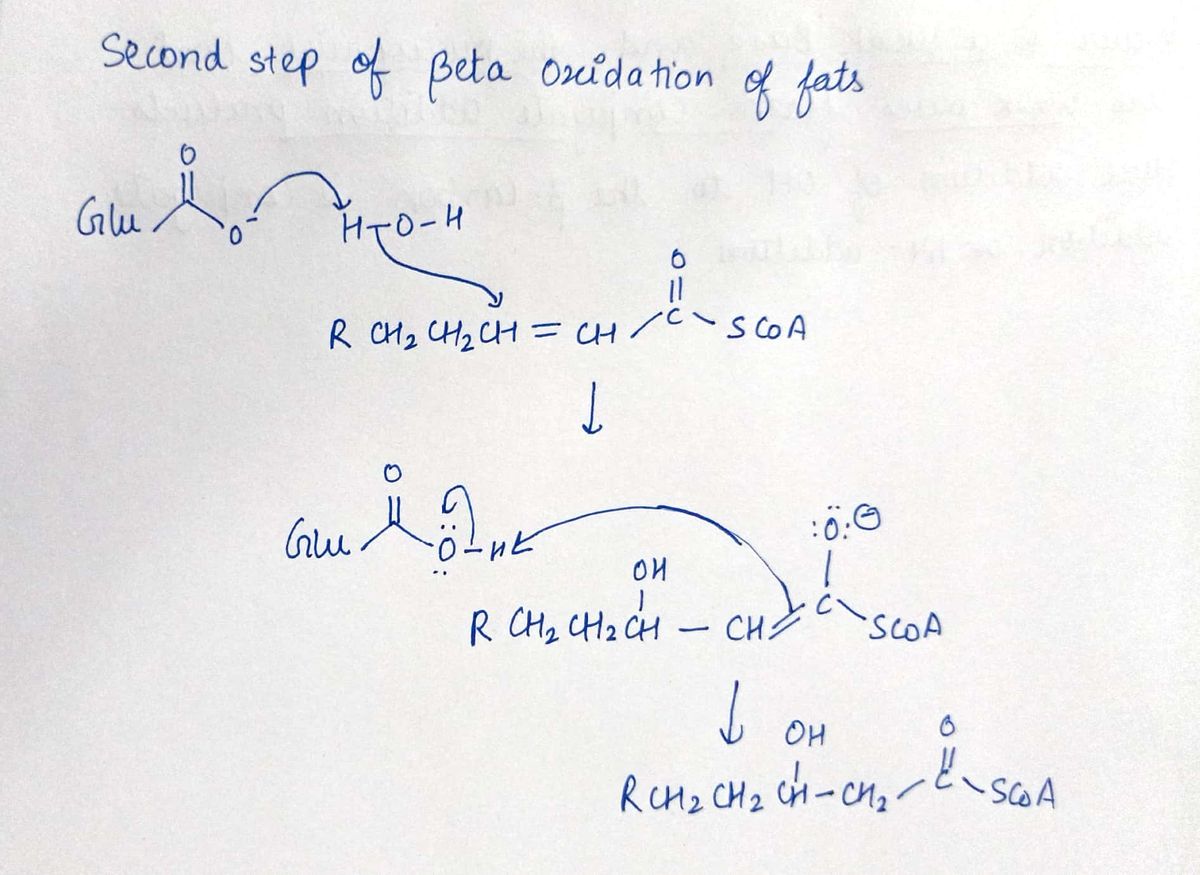 Second step of Beta Oxidation of fats
O
Glu O-
H-O-H
O
||
R CH2 CH2 CH = CH - C - SCOA
↓
O
Glu :Ö-H
OH
:Ö:⊖
R CH2 CH2 CH - CH = C - SCOA
↓
OH
O
R CH2 CH2 CH - CH2 - C - SCOA